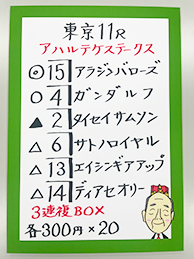 東京11R
アハルテケステークス
◎15 アラジンバローズ
○4 ガンダルフ
▲2 タイセイサムソン
△6 サトノロイヤル
△13 エイシンギアアップ
△14 ディアセオリー
3連複BOX
各300円×20